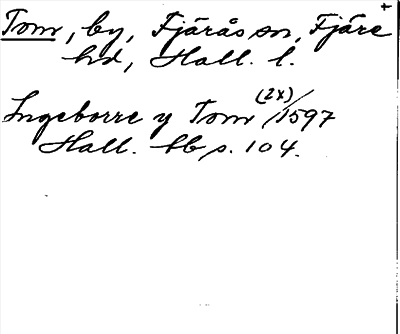 Tom, by, Fjärås sn, Fjäre
hd, Hall. l.
Ingeborre y Tom (2x)/1597
Hall. lb s. 104.